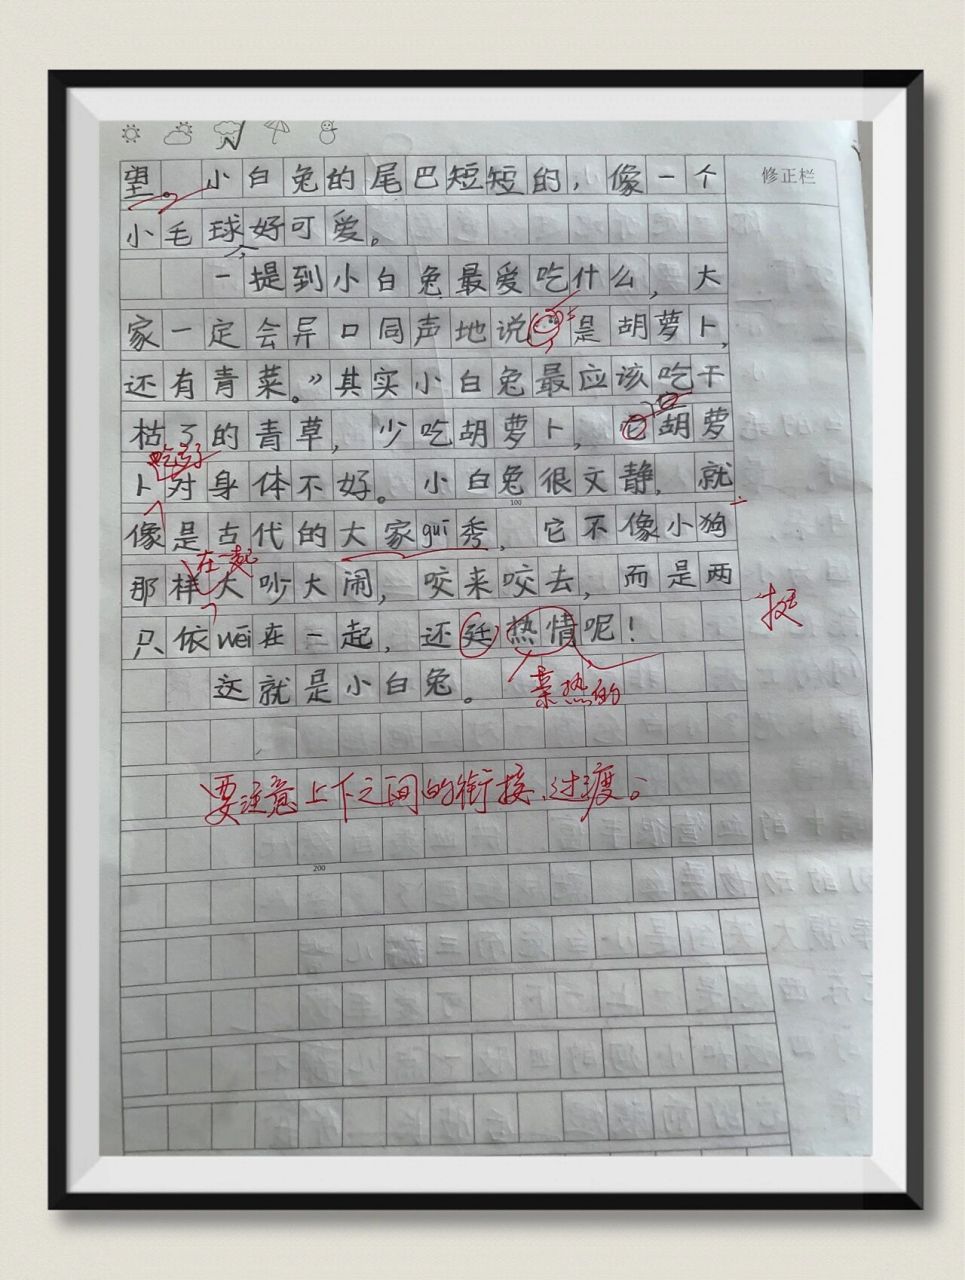 修正栏
望。小白兔的尾巴短短的，像一个
小毛球好可爱。
一提到小白兔最爱吃什么，大
家一定会异口同声地说是胡萝卜，
还有青菜。”其实小白兔最应该吃干
枯了的青草，少吃胡萝卜，胡萝
吃多了
卜对身体不好。小白兔很文静，就
100
像是古代的大家guī秀，它不像小狗
在一起
那样大吵大闹，咬来咬去，而是两
只依wēi在一起，还廷热情呢！
挺
这就是小白兔。
热的
要注意上下之间的衔接、过渡。
200